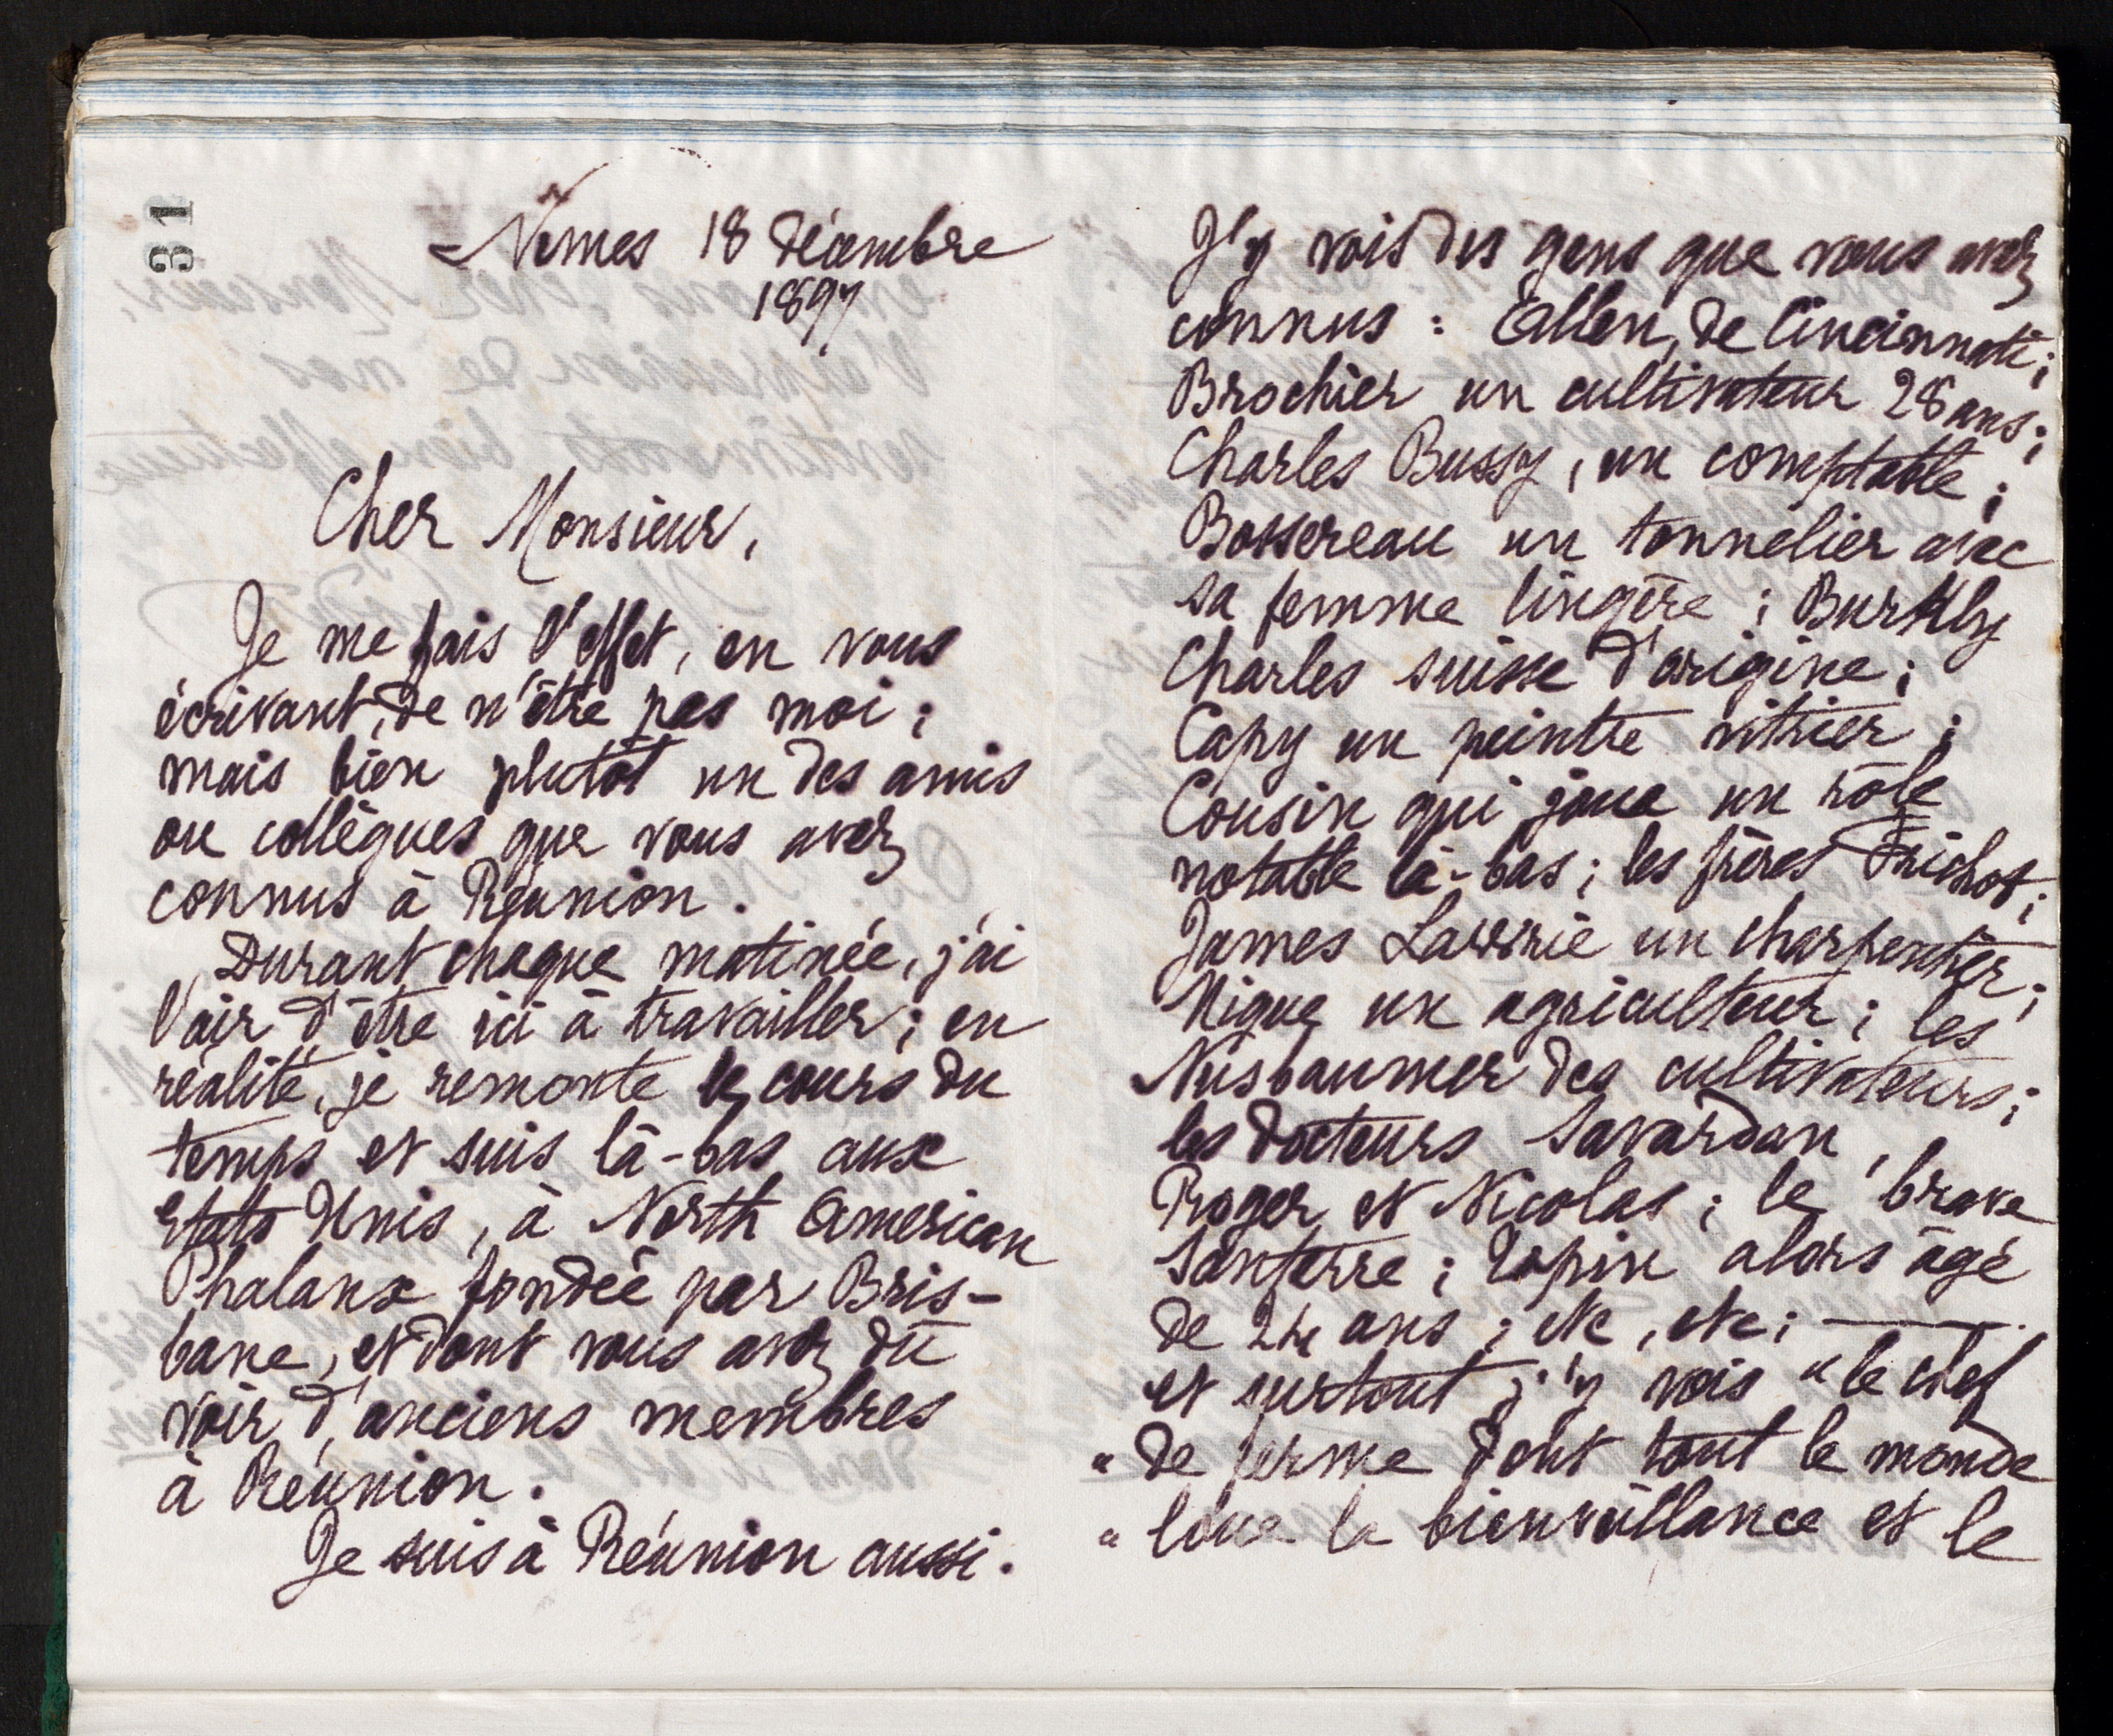 31
Nîmes 18 décembre
1897
Cher Monsieur,
Je me fais l'effet, en vous
écrivant, de n'être pas moi ;
mais bien plutôt un des amis
ou collègues que vous avez
connus à Réunion.
Durant chaque matinée, j'ai
l'air d'être ici à travailler ; en
réalité, je remonte le cours du
temps et suis là-bas aux
Etats Unis, à North American
Phalanx fondée par Bris-
bane, et dont vous avez dû
voir d'anciens membres
à Réunion.
Je suis à Réunion aussi.
J'y vois des gens que vous avez
connus : Allen, de Cincinnati ;
Brochier un cultivateur 28 ans ;
Charles Bussy, un comptable ;
Bossereau un tonnelier avec
sa femme lingère ; Burkly
Charles suisse d'origine ;
Capy un peintre vitrier ;
Cousin qui joua un rôle
notable là-bas ; les frères Frichot ;
James Lawrie un charpentier ;
Nigue un agriculteur ; les
Nusbaumer des cultivateurs ;
les docteurs Savardan,
Roger et Nicolas ; le brave
Santerre ; Lopin alors âgé
de 24 ans ; etc, etc ; —
et surtout j'y vois "le chef
" de ferme dont tout le monde
" loua la bienveillance et le